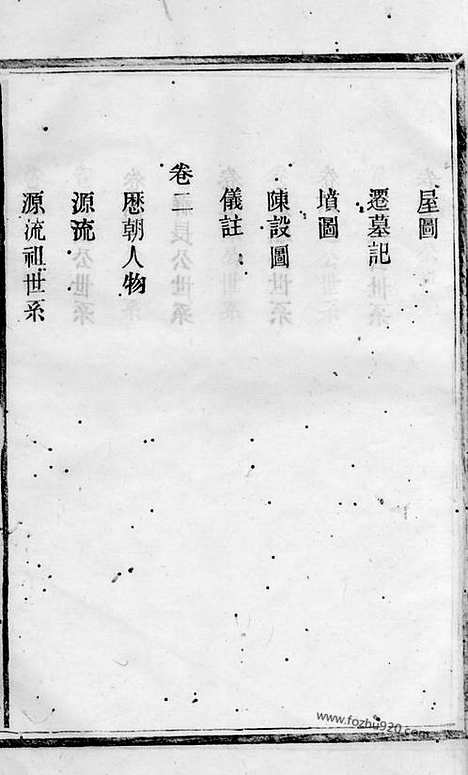 屋圖
遷墓記
墳圖
陳設圖
儀註
卷二
歷朝人物
源流
源流祖世系
www.fozhu920.com